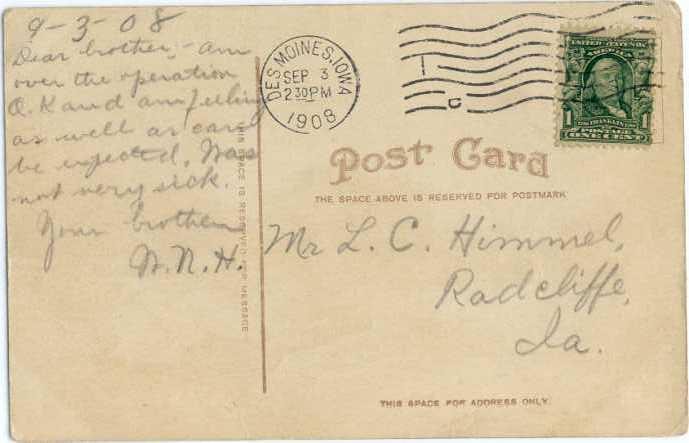 9-3-08
Dear brother,- am
over the operation
O.K and am feeling
as well as can
be expected. Was
not very sick.
Your brother
W.N.H.
THIS SPACE IS RESERVED FOR MESSAGE
DES MOINES, IOWA
SEP 3
230PM
1908
UNITED STATES OF
AMERICA
FRANKLIN
POSTAGE
1 ONE CENT 1
Post Card
THE SPACE ABOVE IS RESERVED FOR POSTMARK
Mr L. C. Himmel,
Radcliffe,
Ia.
THIS SPACE FOR ADDRESS ONLY.